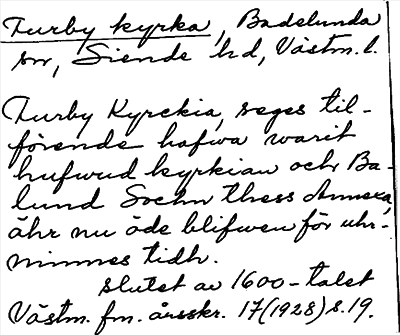 Turby kyrka, Badelunda
sn, Siende hd, Västm. l.
Turby Kyrckia, seges til-
förende hafwa warit
hufwud kyrkian och Ba-
lund Sochn thess Annexa,
ähr nu öde blifwen för uhr-
minnes tidh.
slutet av 1600-talet
Västm. fm. årsskr. 17(1928) s. 19.